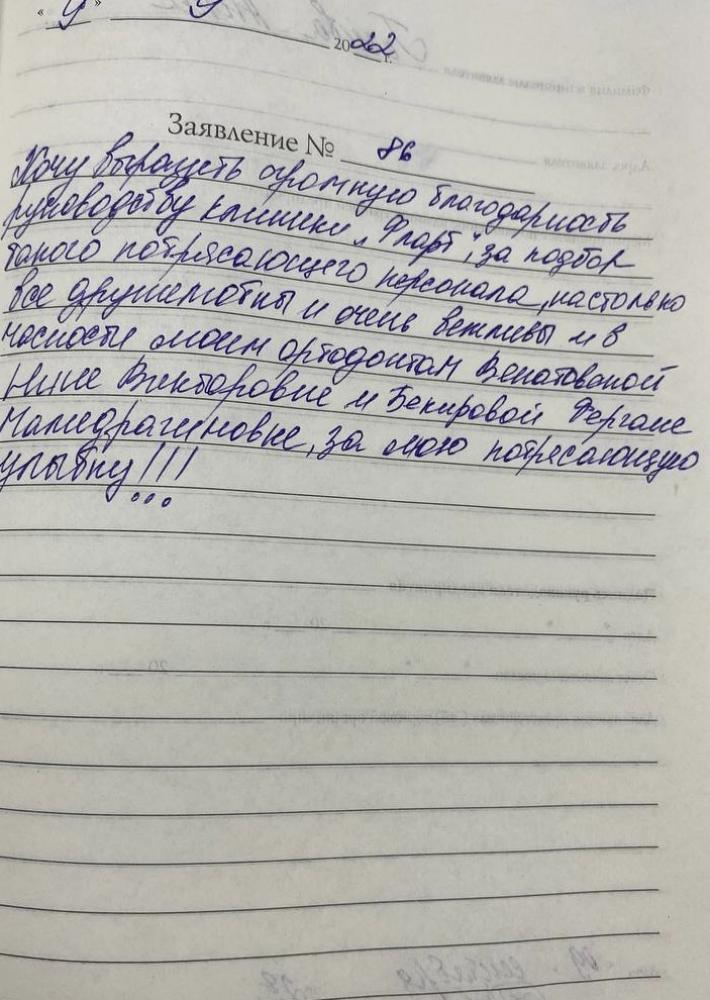 « 9 » 9 2022 г.
Заявление № 86
Хочу выразить огромную благодарность
руководству клиники „Фларт", за подбор
такого потрясающего персонала, настолько
все дружелюбны и очень вежливы и в
часности моим ортодонтам
Нине Викторовне и Бекировой Фергане
за мою потрясающую
улыбку!!!